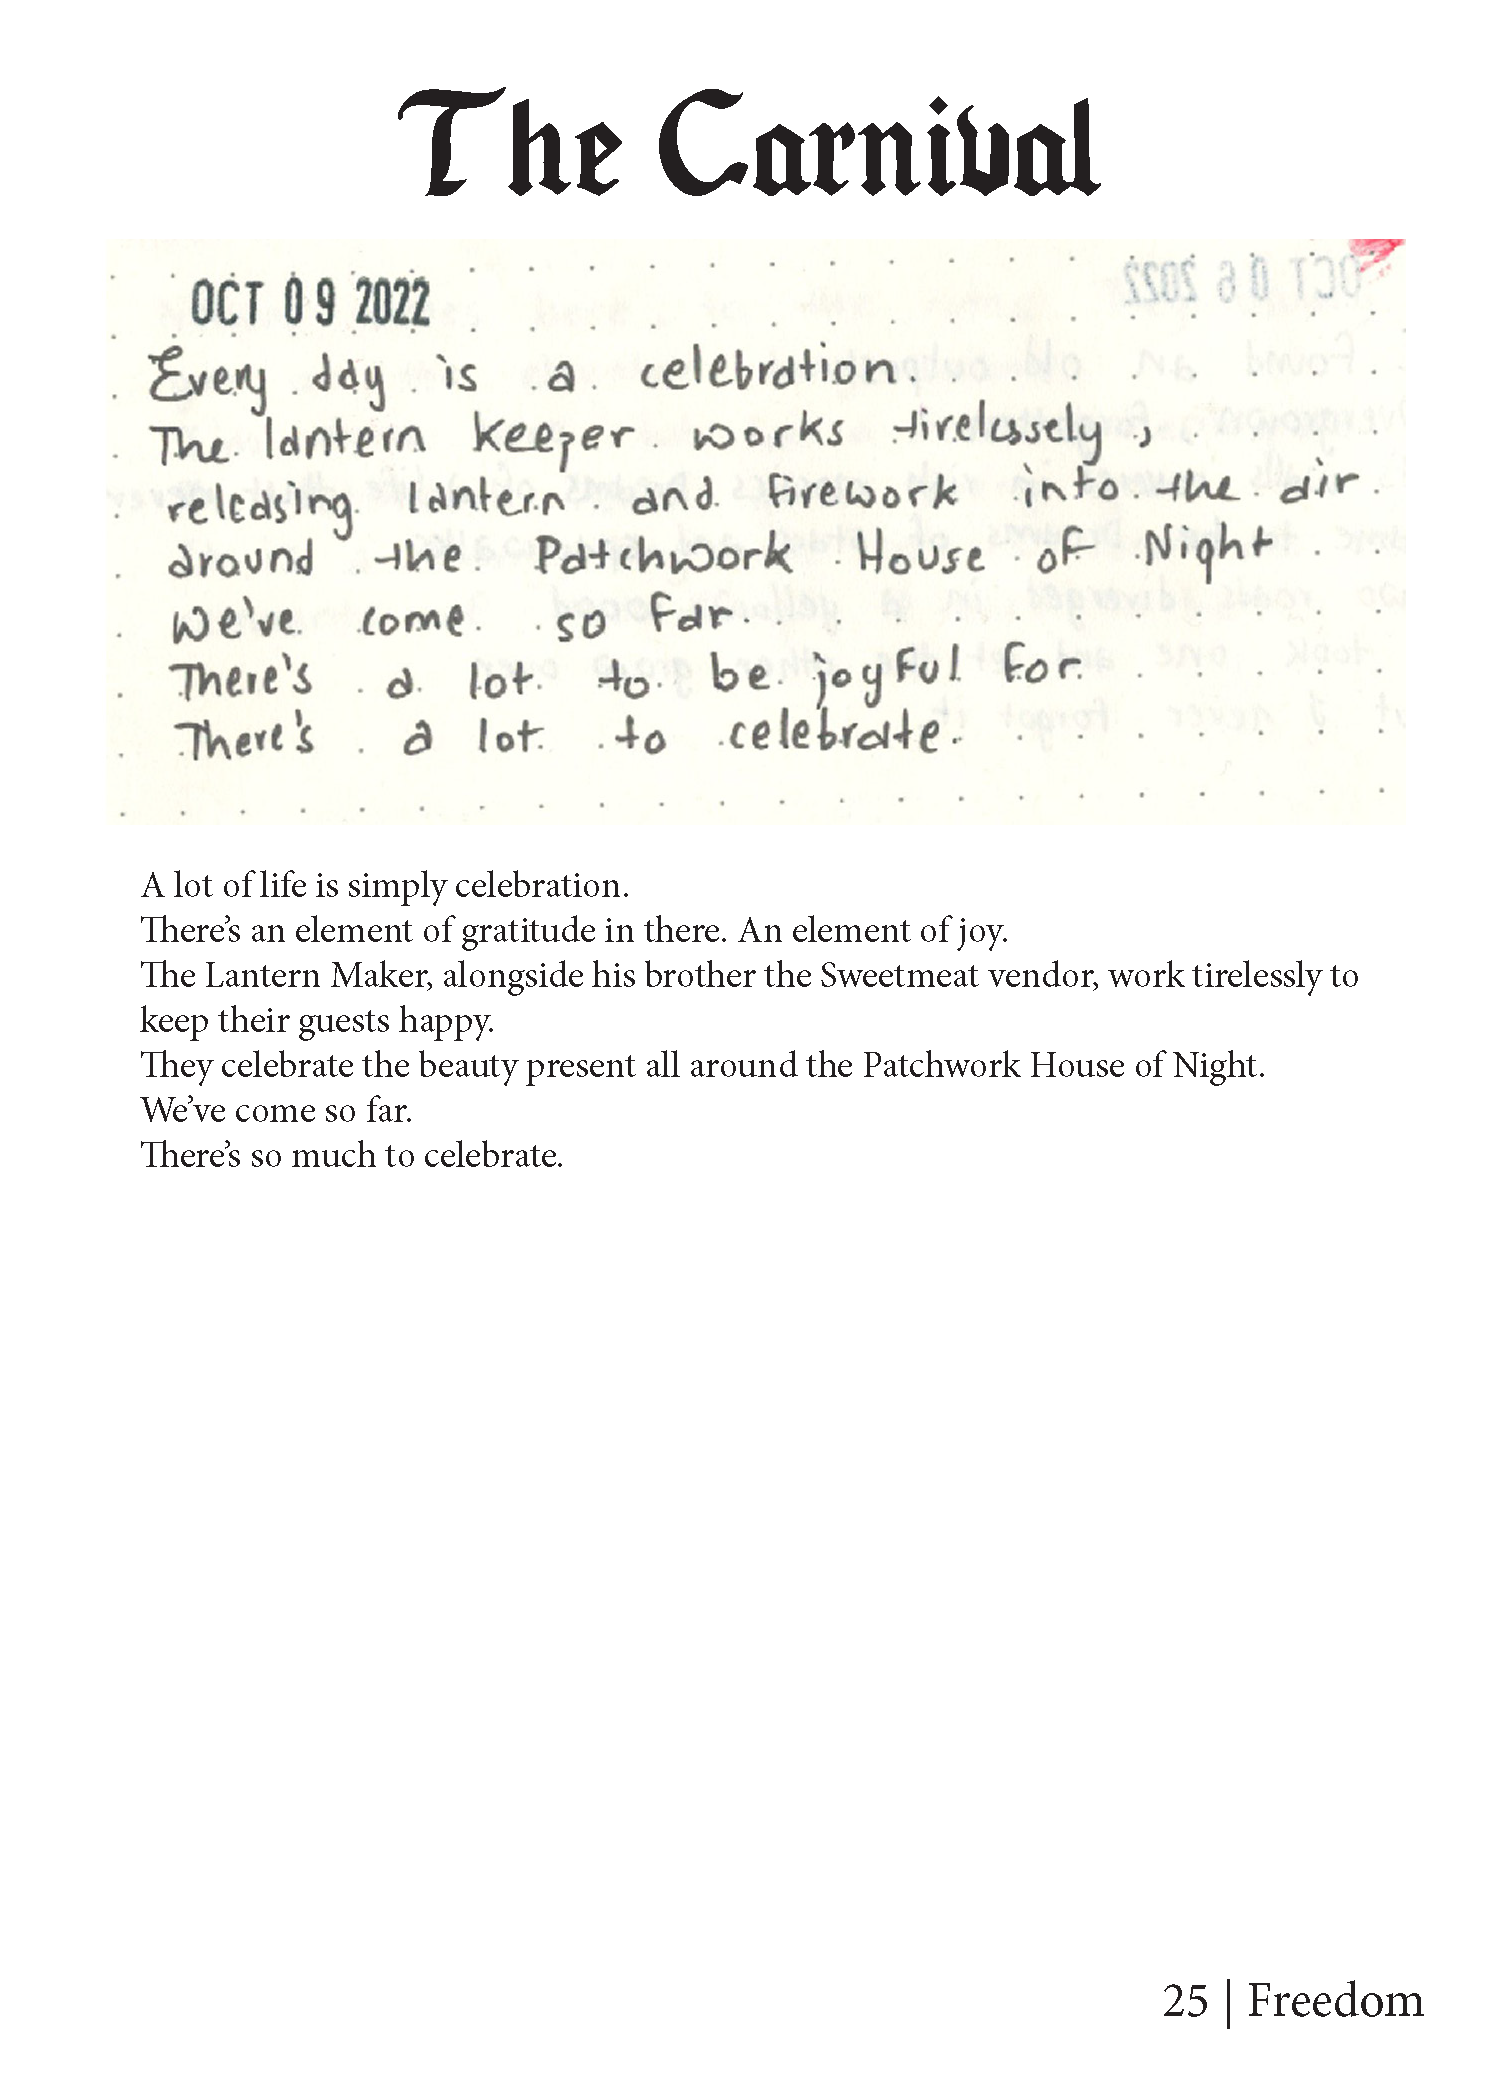 The Carnival
OCT 09 2022
OCT 06 2022
Every day is a celebration.
The lantern keeper works tirelessely,
releasing lantern and firework into the air
around the Patchwork House of Night
We've come so far.
There's a lot to be joyful for
There's a lot to celebrate.
A lot of life is simply celebration.
There's an element of gratitude in there. An element of joy.
The Lantern Maker, alongside his brother the Sweetmeat vendor, work tirelessly to
keep their guests happy.
They celebrate the beauty present all around the Patchwork House of Night.
We've come so far.
There's so much to celebrate.
25 | Freedom